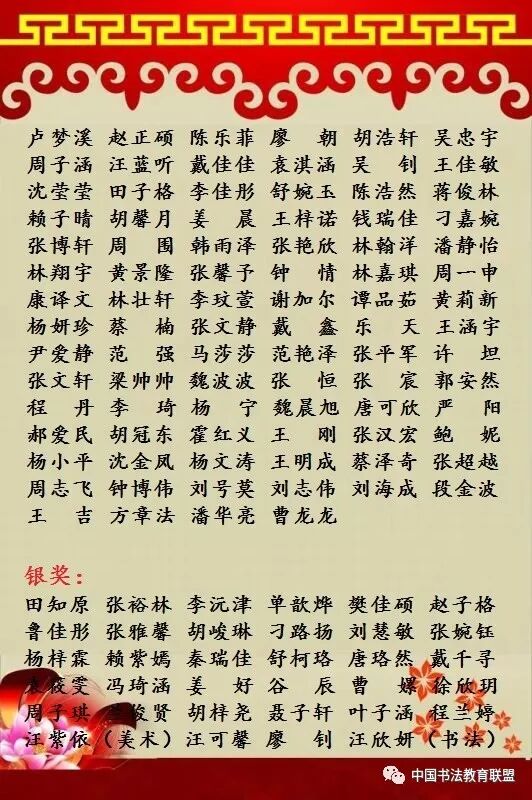 卢梦溪 赵正硕 陈乐菲 廖朝 胡浩轩 吴忠宇
周子涵 汪蓝听 戴佳佳 袁淇涵 吴钊 王佳敏
沈莹莹 田子格 李佳彤 舒婉玉 陈浩然 蒋俊林
赖子晴 胡馨月 姜晨 王梓诺 钱瑞佳 刁嘉婉
张博轩 周围 韩雨泽 张艳欣 林翰洋 潘静怡
林翔宇 黄景隆 张馨予 钟情 林嘉琪 周一申
康译文 林壮轩 李玟萱 谢加尔 谭品茹 黄莉新
杨妍珍 蔡楠 张文静 戴鑫 乐天 王涵宇
尹爱静 范强 马莎莎 范艳泽 张平军 许坦
张文轩 梁帅帅 魏波波 张恒 张宸 郭安然
程丹 李琦 杨宁 魏晨旭 唐可欣 严阳
郝爱民 胡冠东 霍红义 王刚 张汉宏 鲍妮
杨小平 沈金凤 杨文涛 王明成 蔡泽奇 张超越
周志飞 钟博伟 刘号莫 刘志伟 刘海成 段金波
王吉 方章法 潘华亮 曹龙龙
银奖：
田知原 张裕林 李沅津 单歆烨 樊佳硕 赵子格
鲁佳彤 张雅馨 胡峻琳 刁路扬 刘慧敏 张婉钰
杨梓霖 赖紫嫣 秦瑞佳 舒柯珞 唐珞然 戴千寻
袁筱雯 冯琦涵 姜好 谷辰 曹嫘 徐欣玥
周子琪 俊贤 胡梓尧 聂子轩 叶子涵 程兰婷
汪紫依（美术）汪可馨 廖钊 汪欣妍（书法）
中国书法教育联盟